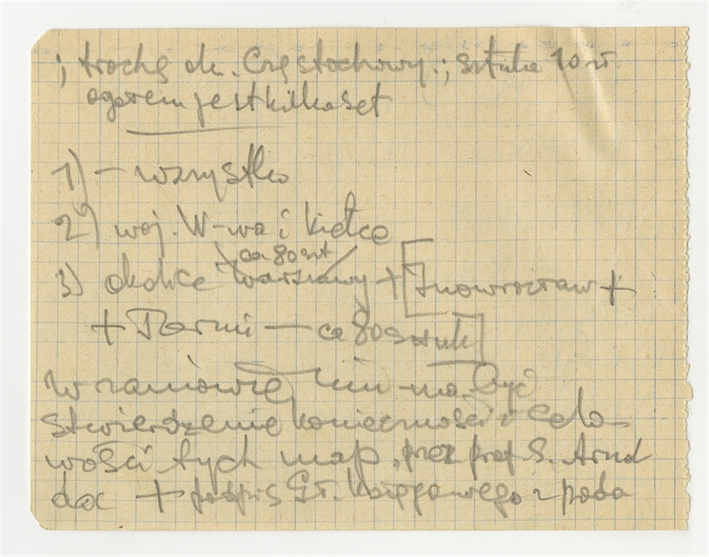 ; trochę ok. Częstochowy.; sztuka 10 zł.
ogółem jest kilkaset
1) – wszystko
2) woj. W-wa i Kielce
ca 80 szt
3) okolice Warszawy + [Inowrocław +
+ Toruń – ca 80 sztuk]
W zamówieniu ma być
stwierdzenie konieczności i celo-
wości tych map, przez prof. S. Arnol
doc + podpis Gł. Księgowego z poda